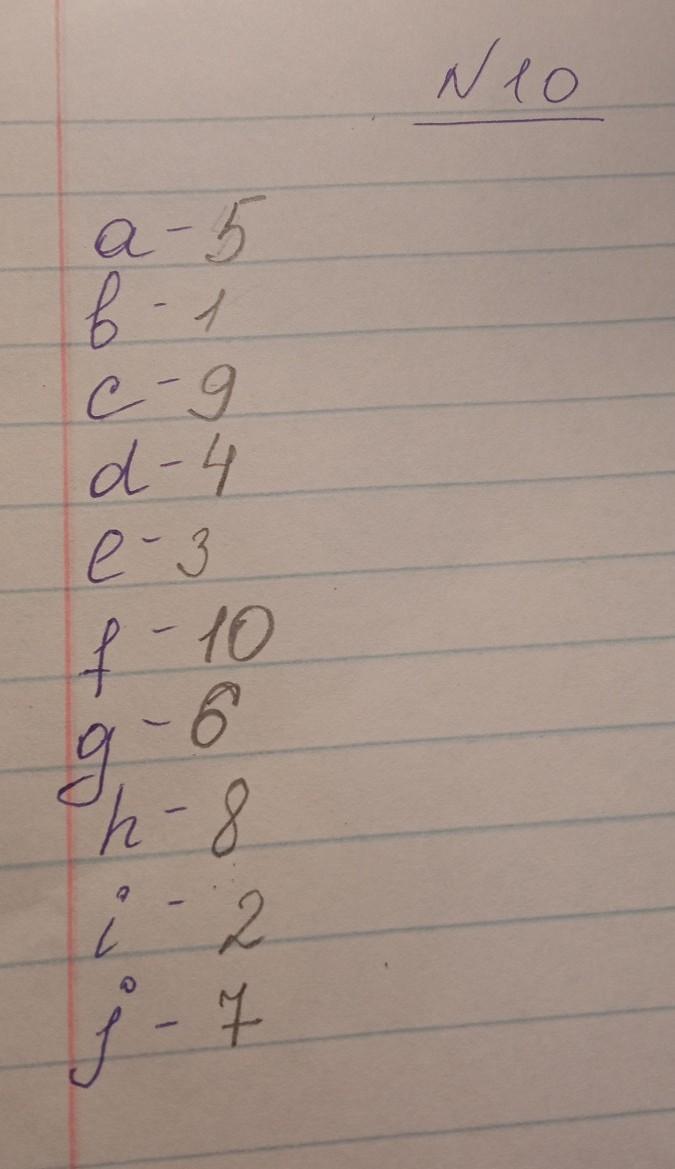 N 10
a - 5
b - 1
c - 9
d - 4
e - 3
f - 10
g - 6
h - 8
i - 2
j - 7